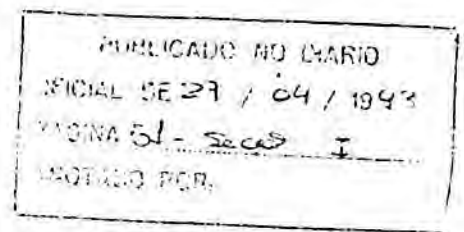 PUBLICADO NO DIARIO
OFICIAL DE 27 / 04 / 1993
PAGINA 51 - Secao I
ANOTADO POR,